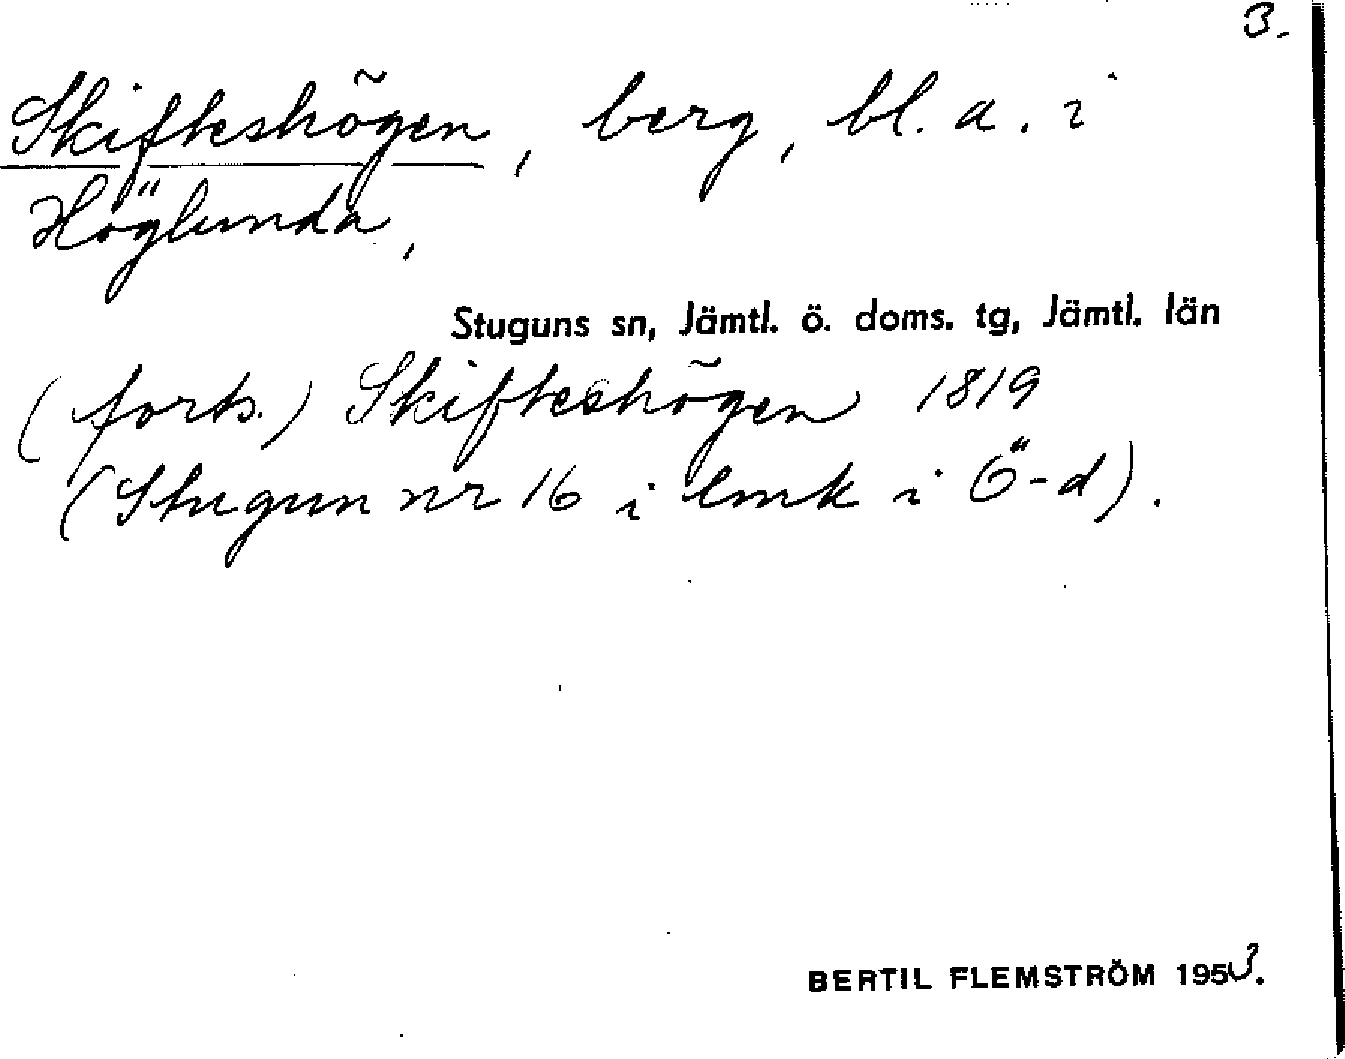 3.
Skifteshögen, berg, bl. a. i
Höglunda,
Stuguns sn, Jämtl. ö. doms. tg, Jämtl. län
(forts.) Skifteshögen 1819
(Stugun nr 16 i lmk i Ö-d).
BERTIL FLEMSTRÖM 1953.